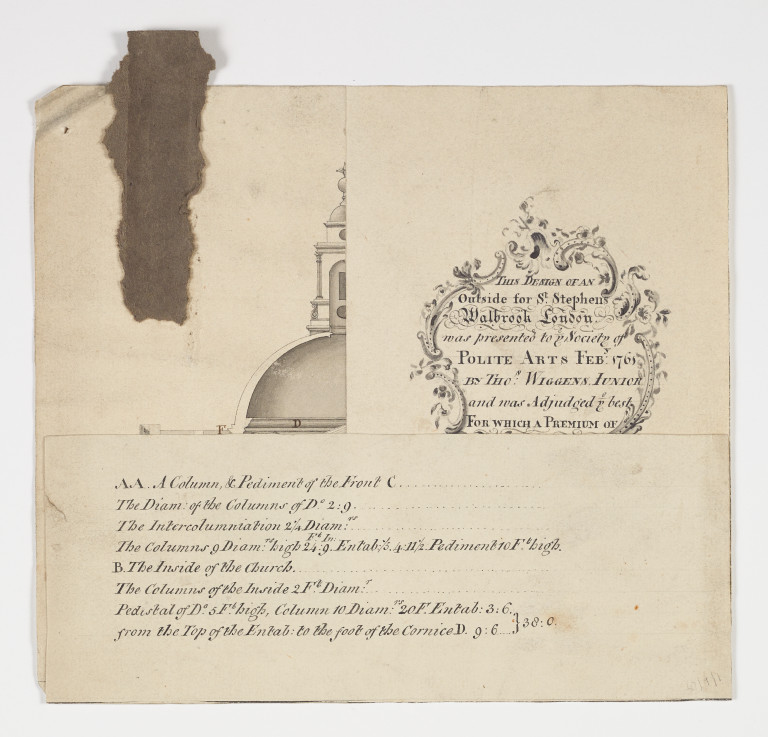 THIS DESIGN OF AN
Outside for St. Stephens
Walbrook London.
was presented to ye Society of
POLITE ARTS FEBy. 1761
BY THOs. WIGGENS JUNIOR
and was Adjudged ye best
FOR WHICH A PREMIUM OF
F
D
AA. A Column, & Pediment of the Front C
The Diam: of the Columns of Do 2:9.
The Intercolumniation 2¼ Diam:rs
The Columns 9 Diam:rs high 24:9. Entab: ⅕. 4:11½. Pediment 10 Ft. high.
Ft. In.
B. The Inside of the Church.
The Columns of the Inside 2 Ft. Diamr.
Pedistal of Do 5 Ft. high, Column 10 Diam:rs 20 F. Entab: 3:6.
from the Top of the Entab: to the foot of the Cornice D. 9:6 } 38:0.